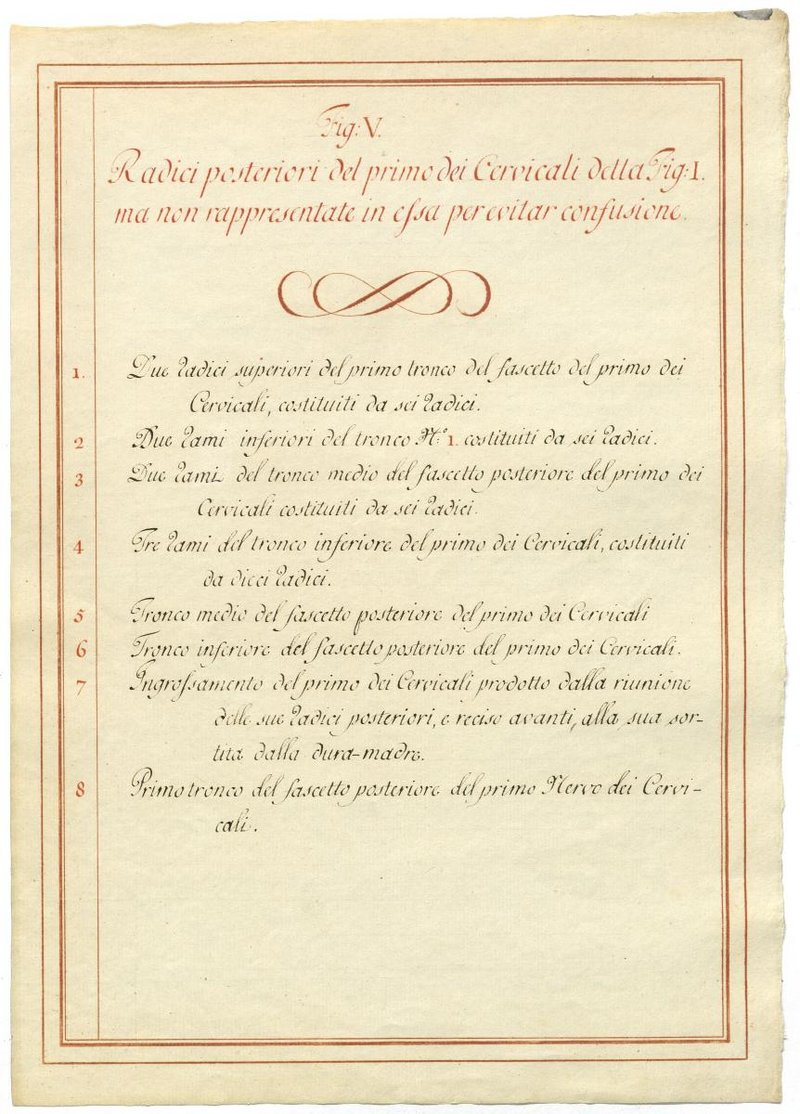 Fig: V.
Radici posteriori del primo dei Cervicali della Fig: I.
ma non rappresentate in essa per evitar confusione.
1. Due radici superiori del primo tronco del fascetto del primo dei
Cervicali, costituiti da sei radici.
2 Due rami inferiori del tronco N.º 1. costituiti da sei radici.
3 Due rami del tronco medio del fascetto posteriore del primo dei
Cervicali costituiti da sei radici.
4 Tre rami del tronco inferiore del primo dei Cervicali, costituiti
da dieci radici.
5 Tronco medio del fascetto posteriore del primo dei Cervicali
6 Tronco inferiore del fascetto posteriore del primo dei Cervicali.
7 Ingrossamento del primo dei Cervicali prodotto dalla riunione
delle sue radici posteriori, e reciso avanti, alla sua sor-
tita dalla dura-madre.
8 Primo tronco del fascetto posteriore del primo Nervo dei Cervi-
cali.